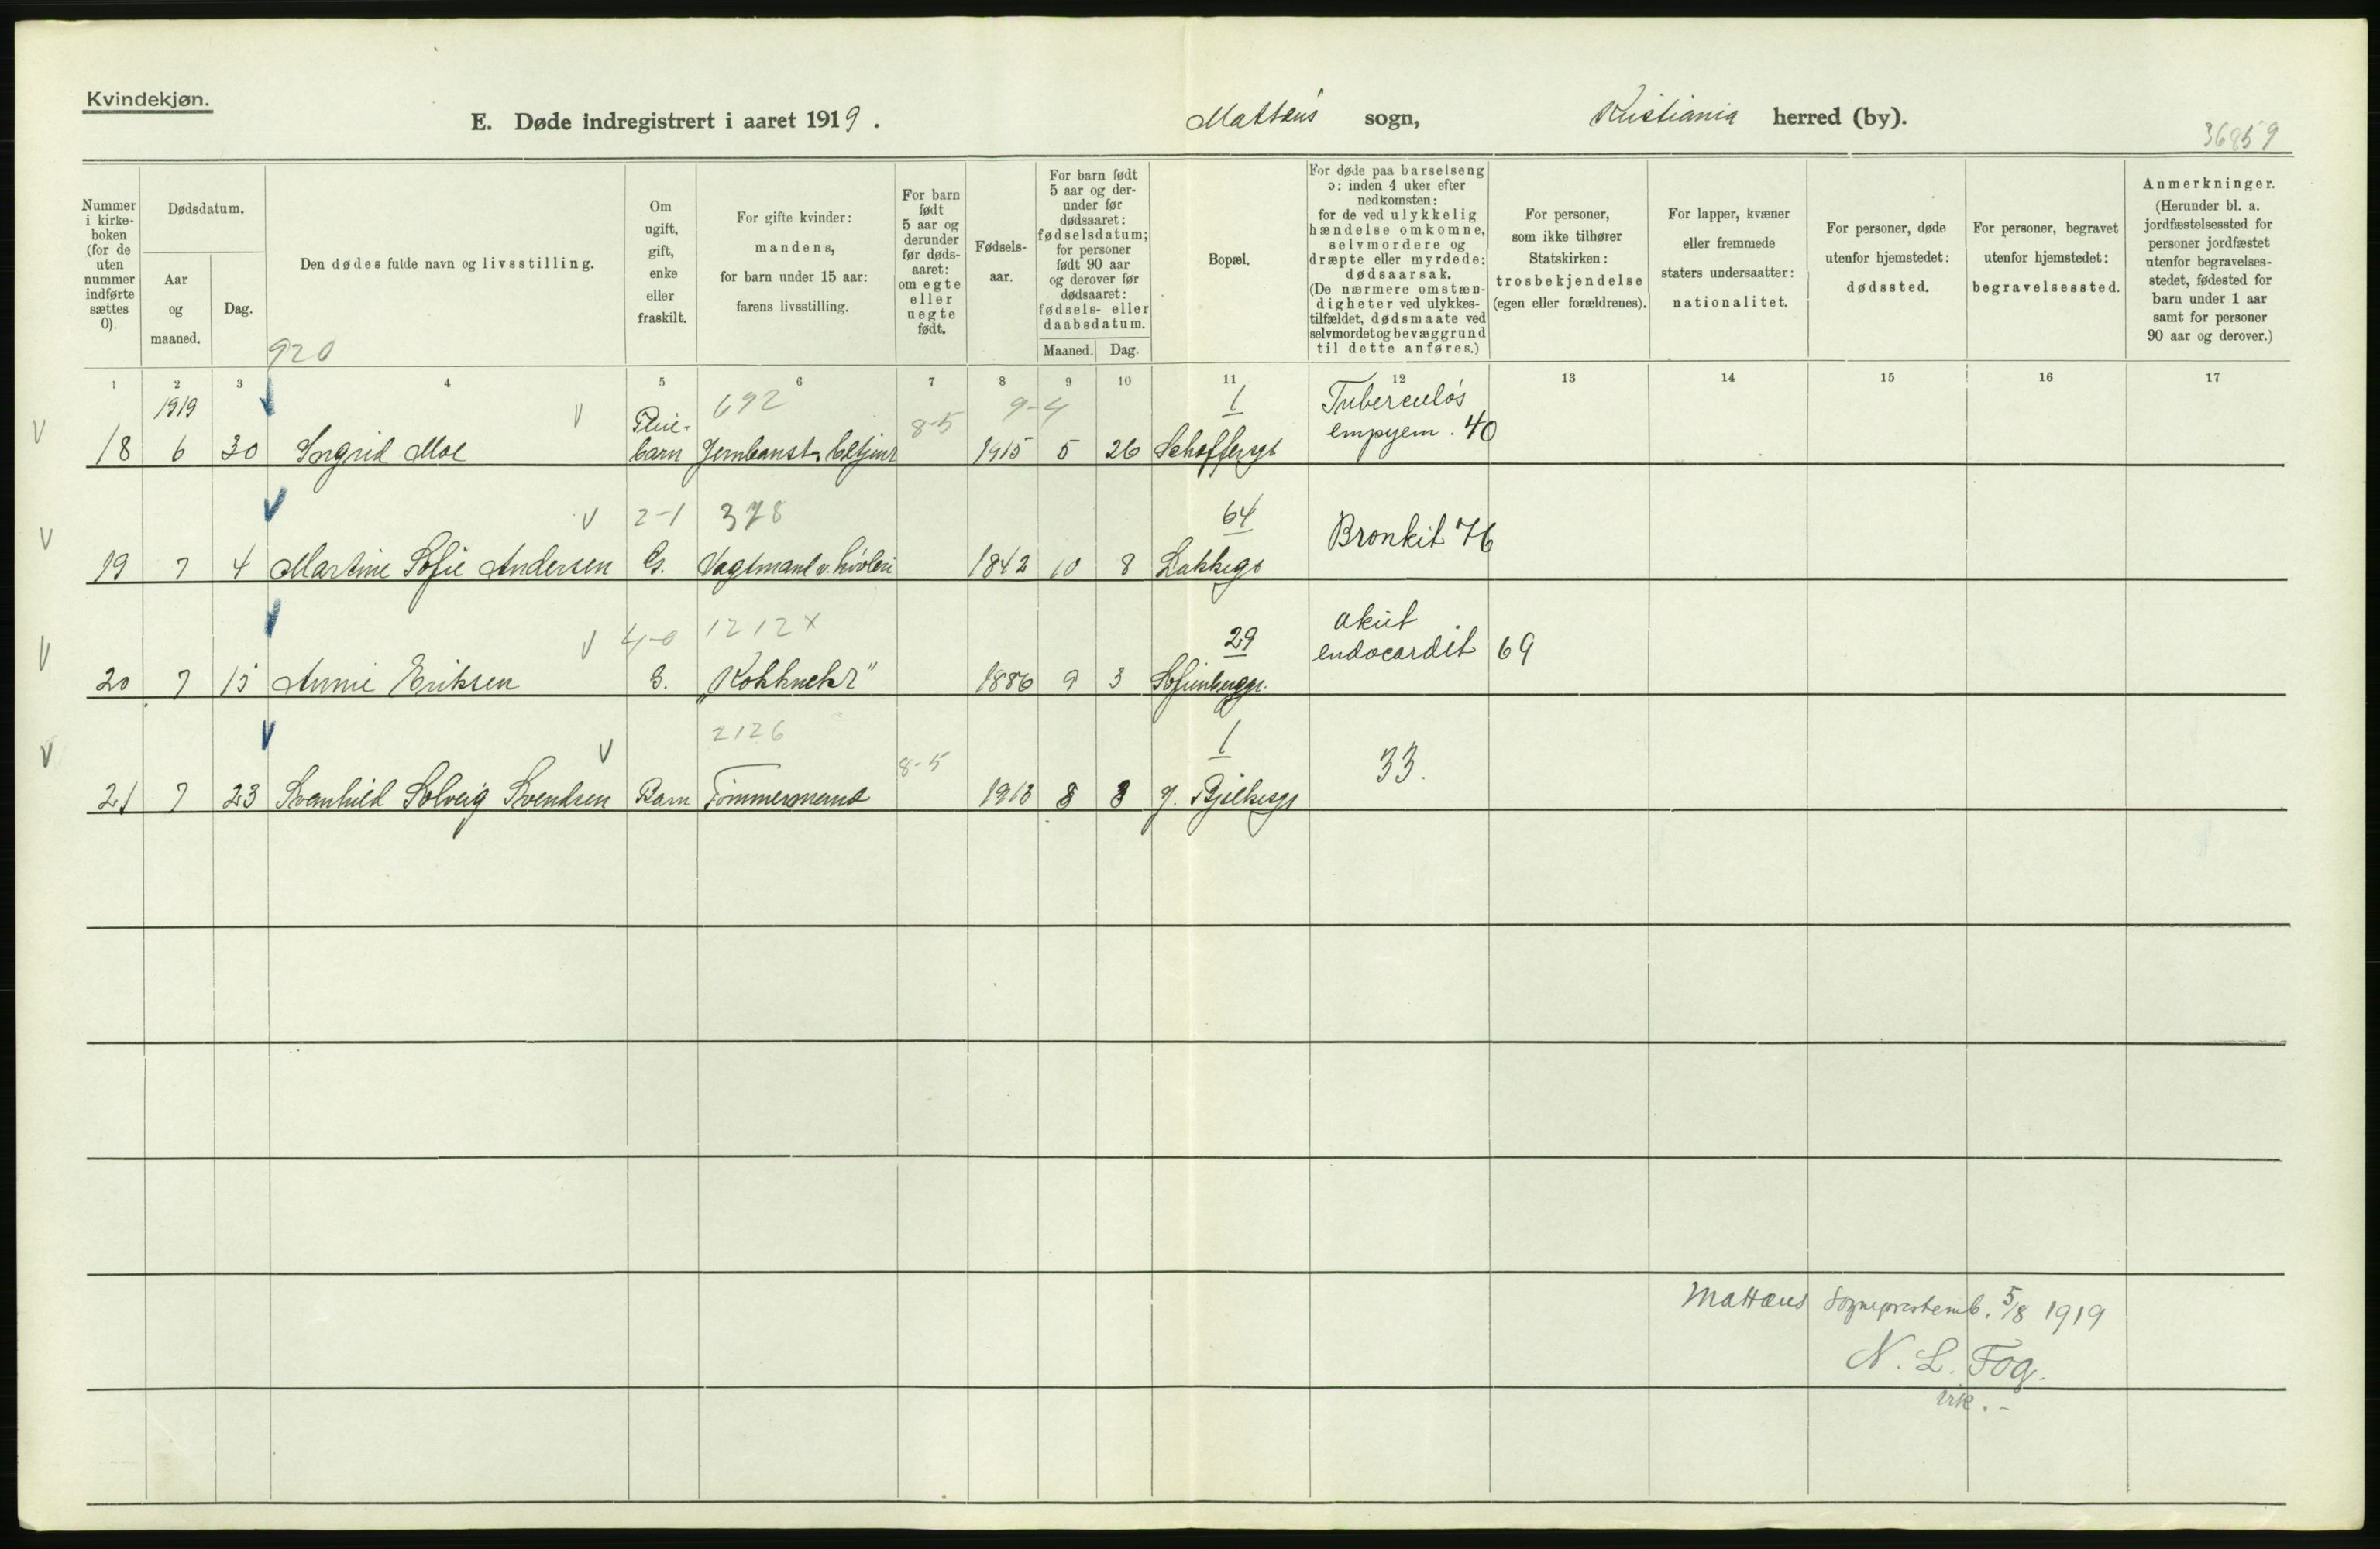 Kvindekjøn.
E. Døde indregistrert i aaret 1919. Mattæus sogn, Kristiania herred (by).
36859
Nummer i kirke-boken (for de uten nummer indførte sættes 0).
Dødsdatum.
Aar og maaned.
Dag.
Den dødes fulde navn og livsstilling.
920
Om ugift, gift, enke eller fraskilt.
For gifte kvinder: mandens, for barn under 15 aar: farens livsstilling.
For barn født 5 aar og derunder før døds-aaret: om egte eller uegte født.
Fødsels-aar.
For barn født 5 aar og der-under før dødsaaret: fødselsdatum; for personer født 90 aar og derover før dødsaaret: fødsels- eller daabsdatum.
Maaned. Dag.
Bopæl.
For døde paa barselseng ɔ: inden 4 uker efter nedkomsten: for de ved ulykkelig hændelse omkomne, selvmordere og dræpte eller myrdede: dødsaarsak. (De nærmere omstæn-digheter ved ulykkes-tilfældet, dødsmaate ved selvmordet og bevæggrund til dette anføres.)
For personer, som ikke tilhører Statskirken: trosbekjendelse (egen eller forældrenes).
For lapper, kvæner eller fremmede staters undersaatter: nationalitet.
For personer, døde utenfor hjemstedet: dødssted.
For personer, begravet utenfor hjemstedet: begravelsessted.
Anmerkninger. (Herunder bl. a. jordfæstelsessted for personer jordfæstet utenfor begravelses-stedet, fødested for barn under 1 aar samt for personer 90 aar og derover.)
1 2 3 4 5 6 7 8 9 10 11 12 13 14 15 16 17
1919 V 692 8-5 9-4 1 Tuberculøs
V 18 6 30 Ingrid Moe Pleie-barn Jernbanest. betjent 1915 5 26 empyem. 40
V 2-1 378 64
V 19 7 4 Martine Sofie Andersen G. Vagtmand v. høvleri 1842 10 8 Lakkegt Bronkit 76
V 4-0 1212 x 29 akut
V 20 7 15 Annie Eriksen G. 1886 9 3 Sofienberggt. endocardit 69
V 2126 8-5 1
V 21 7 23 Svanhild Solveig Svendsen Barn Tømmermand 1913 8 8 33.
Mattæus Sogneprestemb. 5/8 1919
N. L. Fog.